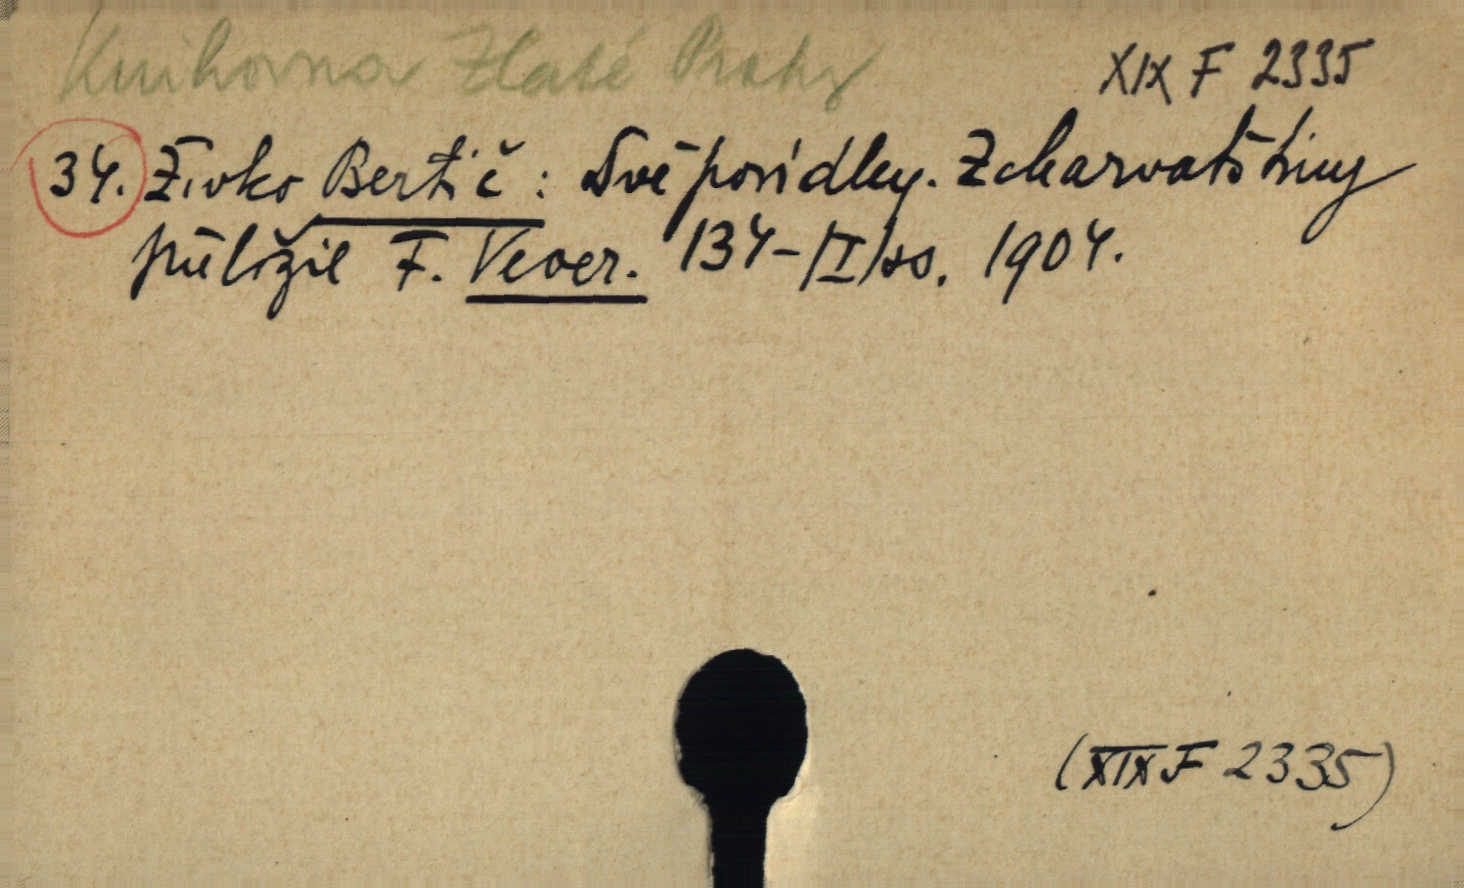 Knihovna Zlaté Prahy
XIX F 2335
34. Živko Bertić: Dvě povídky. Z charvatštiny
přeložil F. Vever. 134-/I/ss. 1904.
(XIX F 2335)